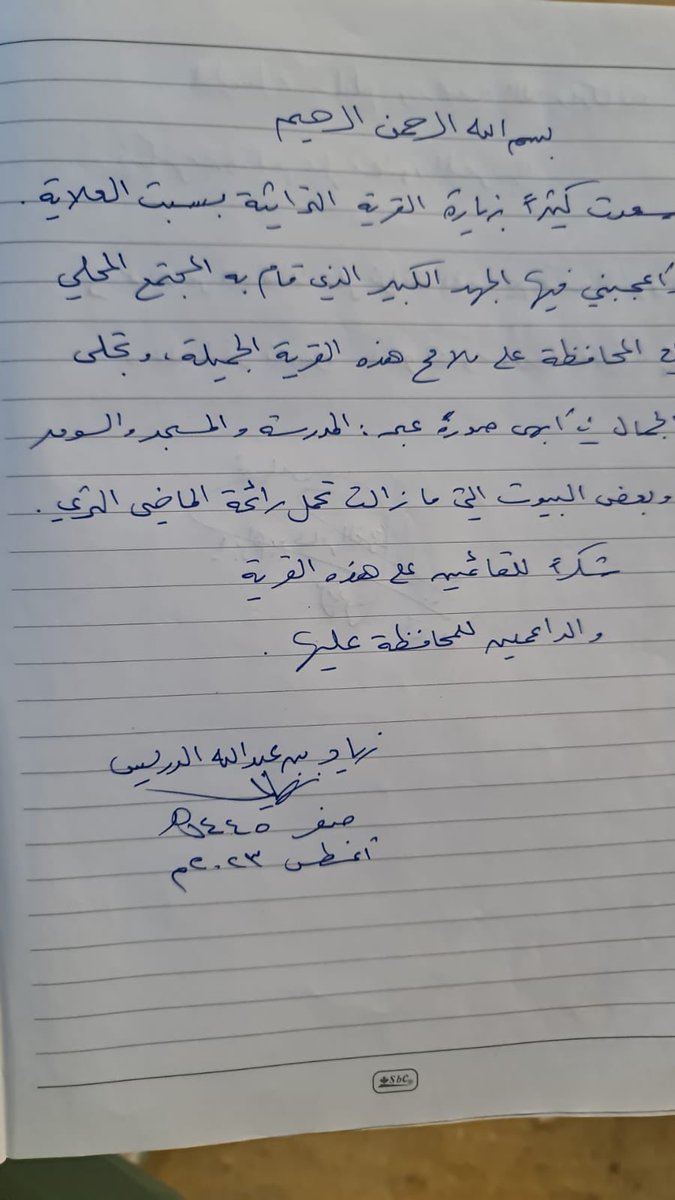 بسم الله الرحمن الرحيم
سعدت كثيراً بزيارة القرية التراثية بسبت العلاية .
وأعجبني فيها الجهد الكبير الذي قام به المجتمع المحلي
في المحافظة على ملامح هذه القرية الجميلة، وتجلى
الجمال في أبهى صورة عبر: المدرسة والمسجد والسوق
وبعض البيوت التي ما زالت تحمل رائحة الماضي الثري .
شكراً للقائمين على هذه القرية
والداعمين للمحافظة عليها .
زياد بن عبدالله الدريس
صفر ١٤٤٥هـ
أغسطس ٢٠٢٣م
SbC